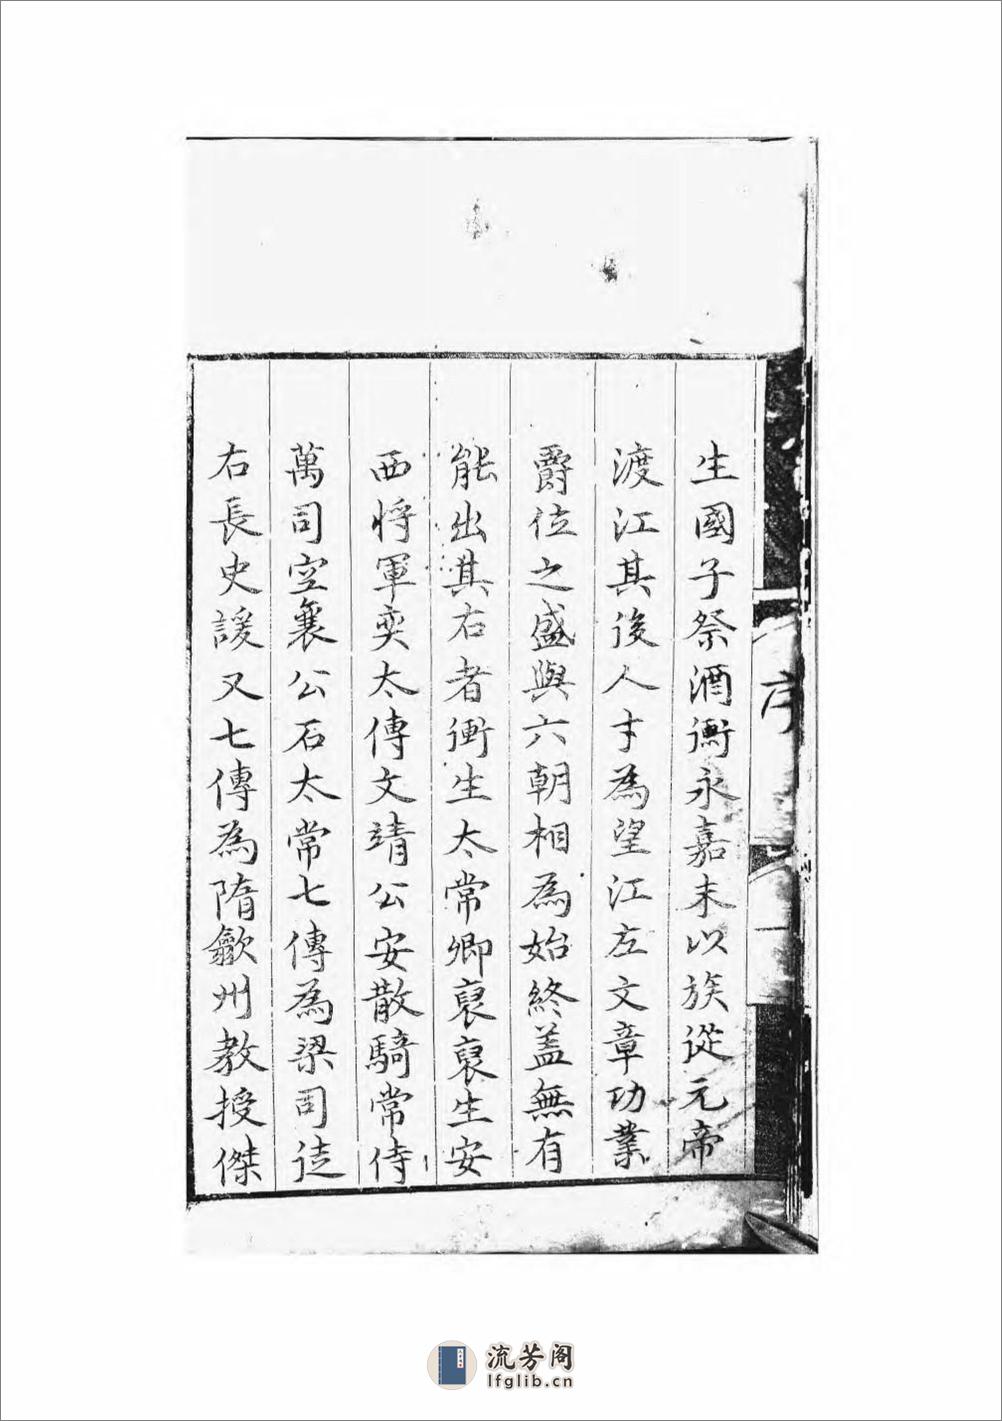 生國子祭酒衡永嘉末以族從元帝
渡江其後人才為望江左文章功業
爵位之盛與六朝相為始終蓋無有
能出其右者衡生太常卿裒裒生安
西將軍奕太傅文靖公安散騎常侍
萬司空襄公石太常七傳為梁司徒
右長史諼又七傳為隋歙州教授傑
序
流芳阁
lfglib.cn